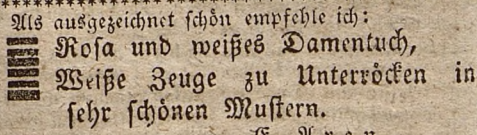 Als ausgezeichnet schön empfehle ich:
Rosa und weißes Damentuch,
Weiße Zeuge zu Unterröcken in
sehr schönen Mustern.